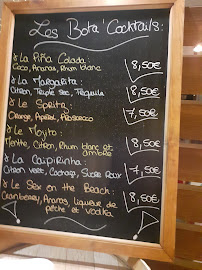 Les Bota'Cocktails:
La Piña Colada:
Coco, Ananas, Rhum blanc
8,50€
La Margarita:
Citron, Triple sec, Tequila
8,50€
Le Spritz:
Orange, Aperol, Prosecco
7,50€
Le Mojito:
Menthe, Citron, Rhum blanc et
ambré
8,50€
La Caipirinha:
Citron vert, Cachaça, Sucre roux
7,50€
Le Sex on the Beach:
Cranberry, Ananas, Liqueur de
pêche et Vodka
8,50€